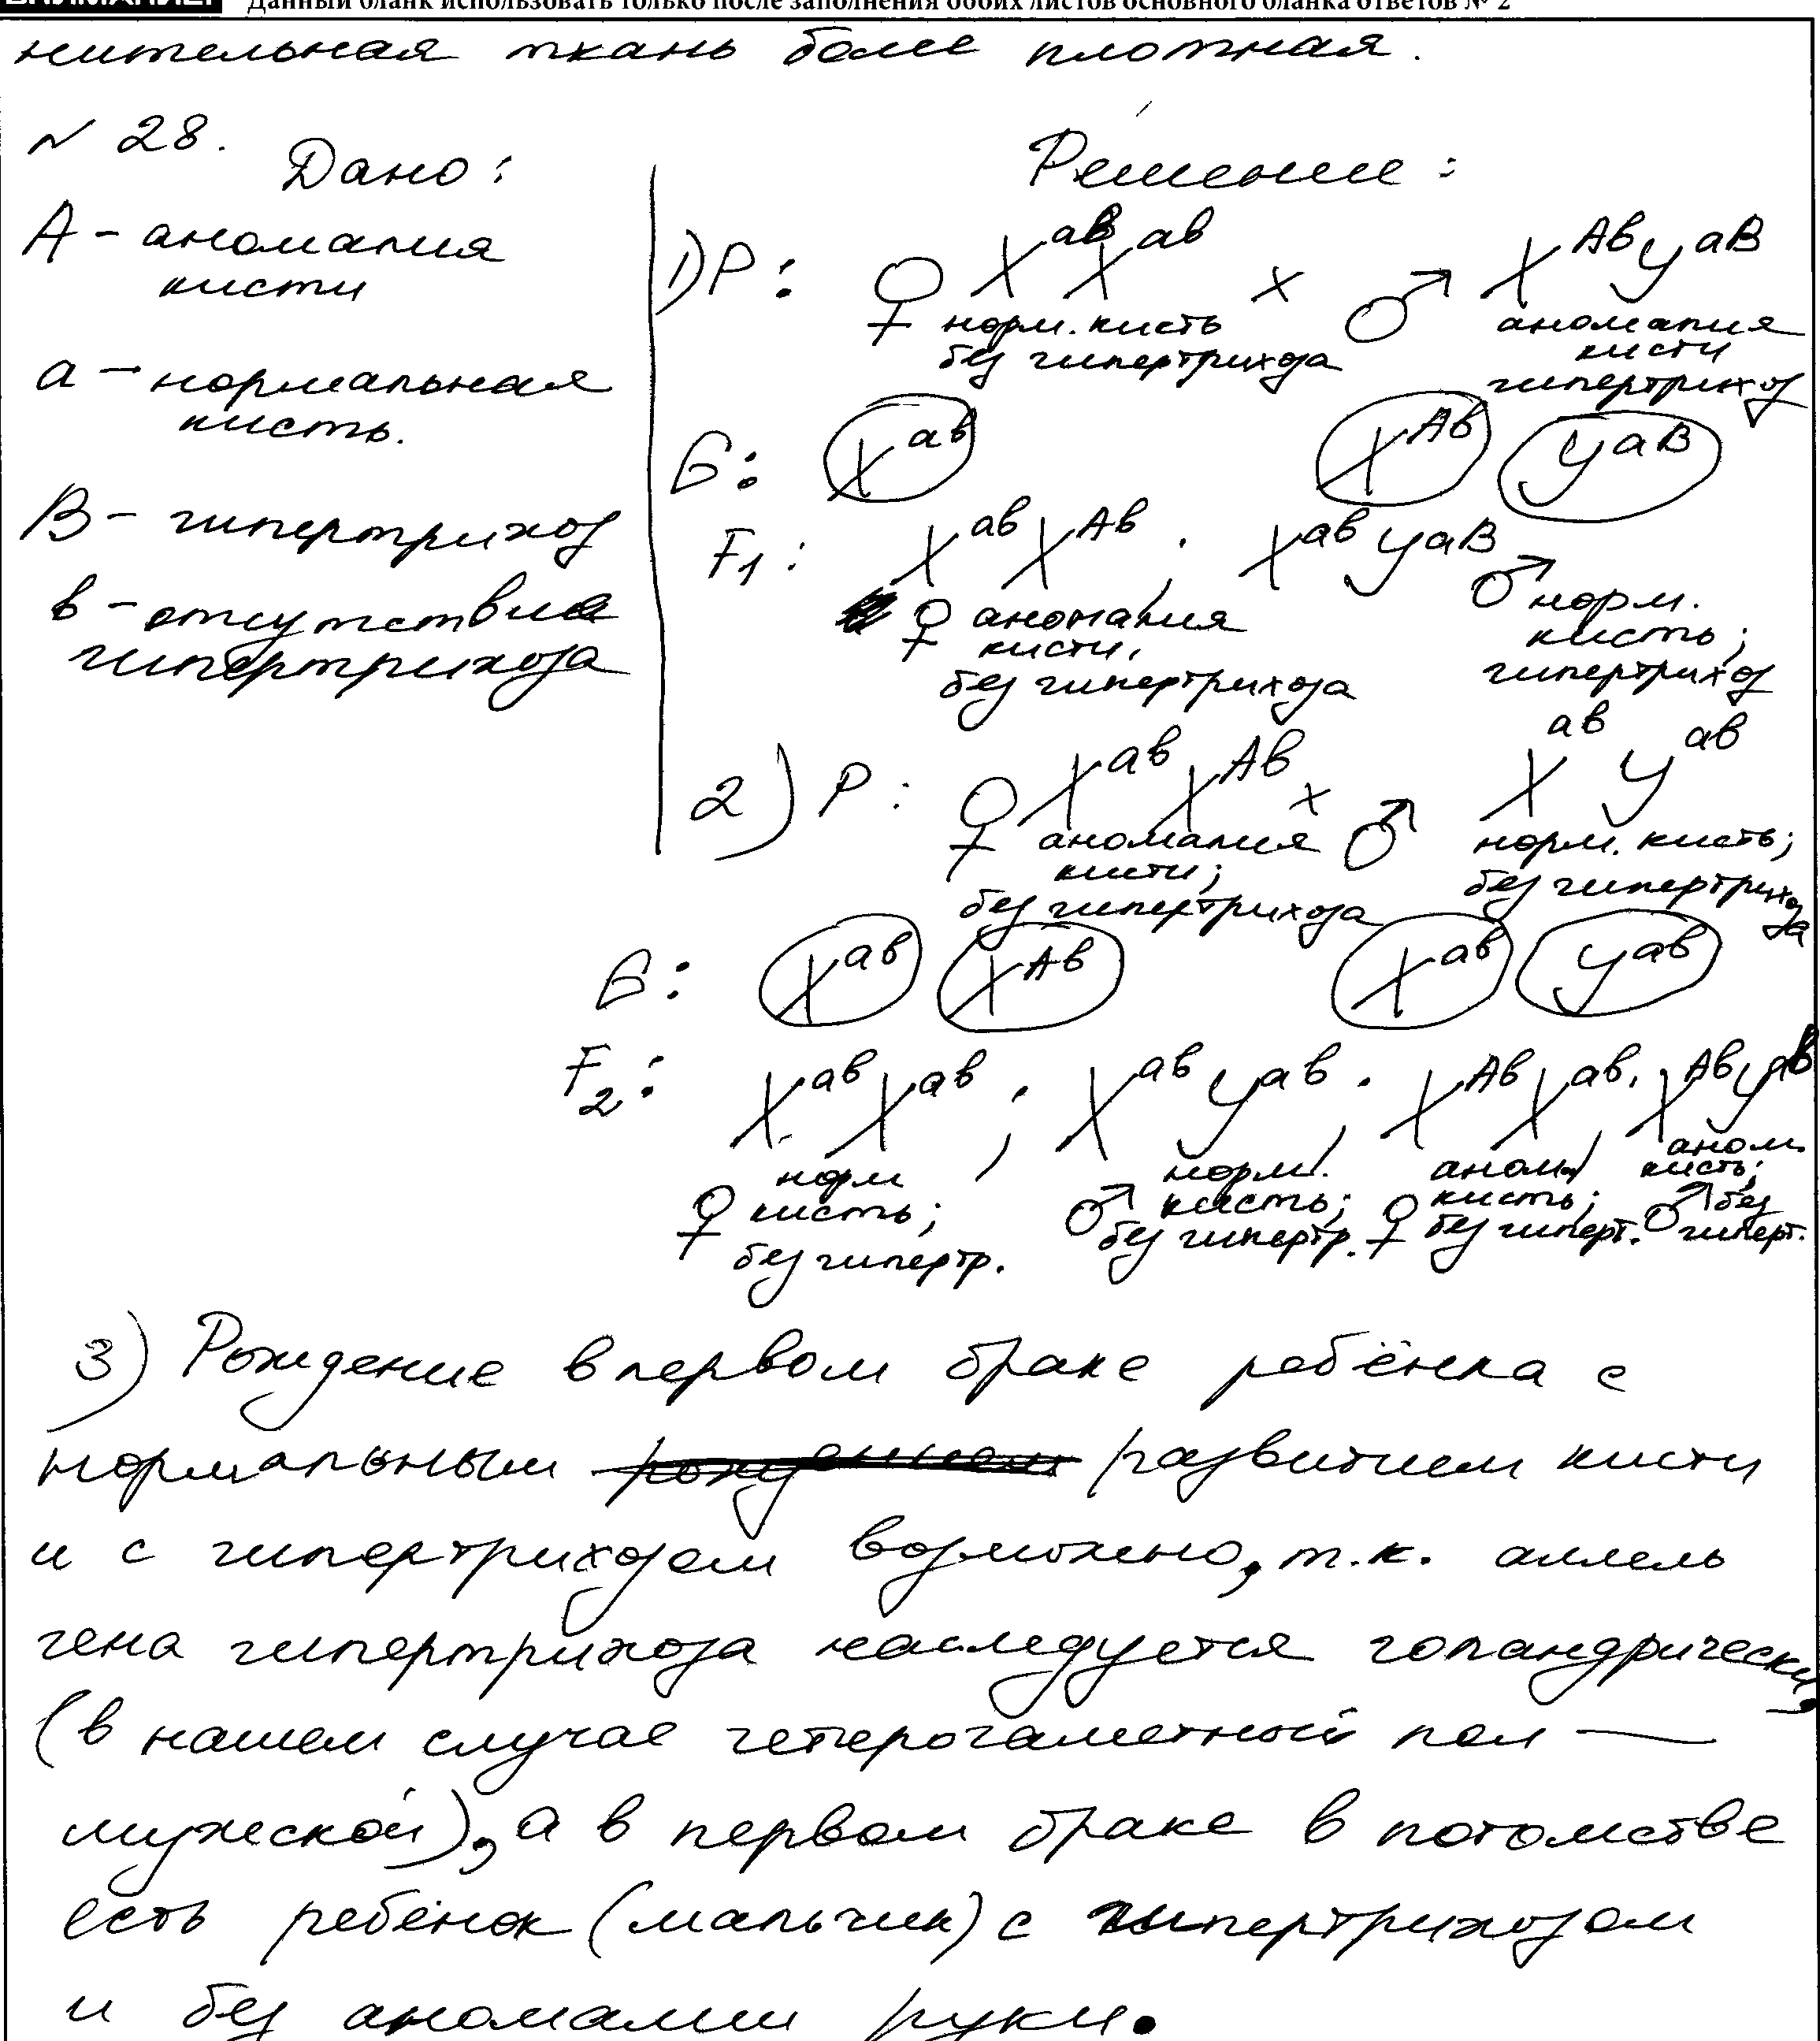 Данный бланк использовать только после заполнения обоих листов основного бланка ответов № 2
нительная ткань более плотная.
N 28. Дано:
A - аномалия
кисти
a - нормальная
кисть.
B - гипертрихоз
в - отсутствие
гипертрихоза
Решение:
1) P: ♀ X^ав X^ав x ♂ X^Ав У^аВ
норм. кисть
без гипертрихоза
аномалия
кисти
гипертрихоз
G: X^ав X^Ав У^аВ
F1: X^ав X^Ав ; X^ав У^аВ
♀ аномалия
кисти,
без гипертрихоза
♂ норм.
кисть;
гипертрихоз
2) P: ♀ X^ав X^Ав x ♂ X^ав У^ав
аномалия
кисти;
без гипертрихоза
норм. кисть;
без гипертрихоза
G: X^ав X^Ав X^ав У^ав
F2: X^ав X^ав ; X^ав У^ав ; X^Ав X^ав ; X^Ав У^ав
♀ норм
кисть;
без гипертр.
♂ норм.
кисть;
без гипертр.
♀ аном.
кисть;
без гиперт.
♂ аном.
кисть;
без
гиперт.
3) Рождение в первом браке ребёнка с
нормальным развитием кисти
и с гипертрихозом возможно, т.к. аллель
гена гипертрихоза наследуется голандрически,
(в нашем случае гетерогаметный пол —
мужской), а в первом браке в потомстве
есть ребёнок (мальчик) с гипертрихозом
и без аномалии руки.